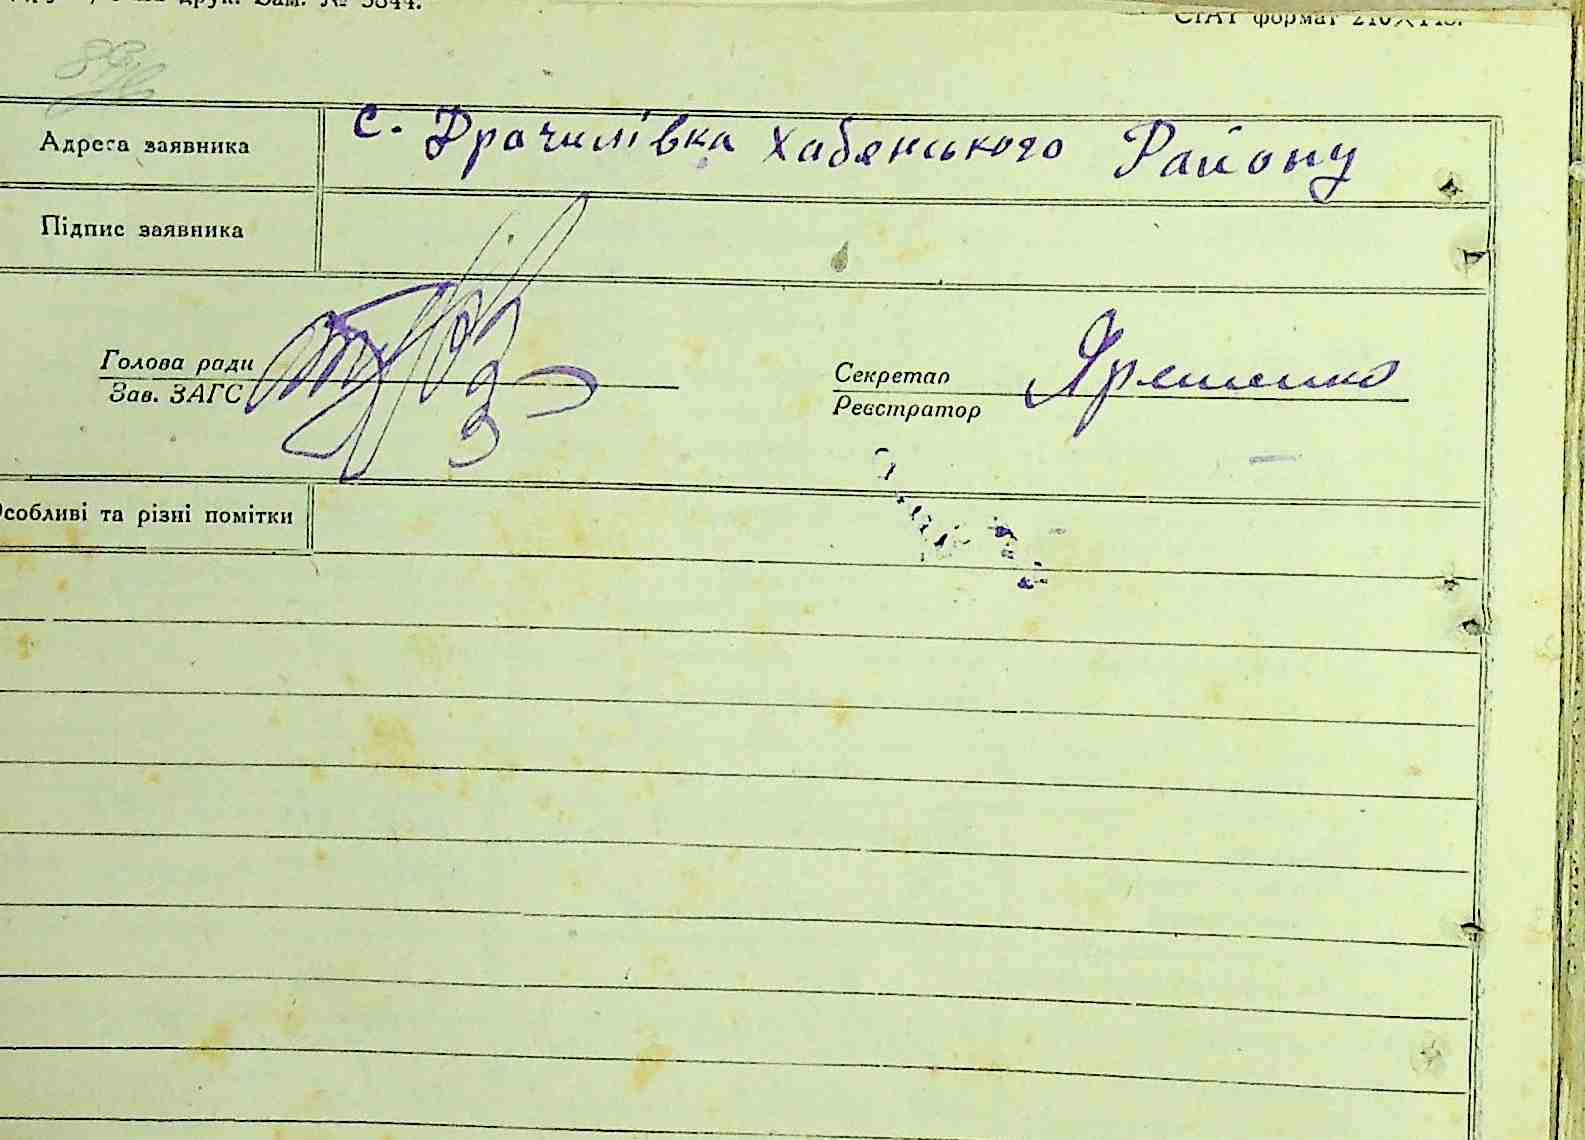 друк. Зам. № 5844.
СтАТ формат 210×148.
Адреса заявника
с. Драчилівка Хабянського Району
Підпис заявника
Голова ради
Зав. ЗАГС
Секретар
Реєстратор
Яременко
Особливі та різні помітки